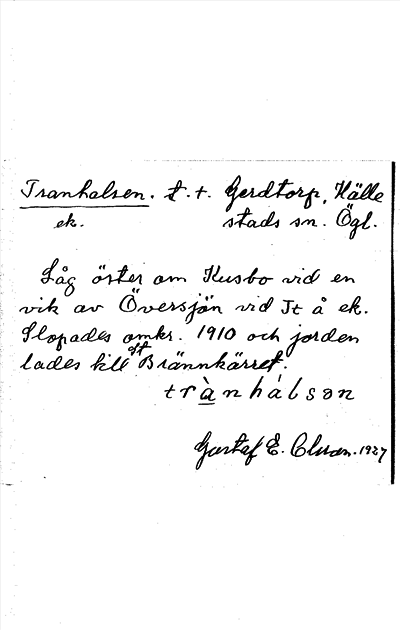 Tranhalsen. t. t. Gerdtorp, Hälle
ek. stads sn. Ögl.
Låg öster om Kusbo vid en
vik av Översjön vid It å ek.
Slopades omkr. 1910 och jorden
lades till Brännkärret.
trànhálsən
Gustaf E. 1927